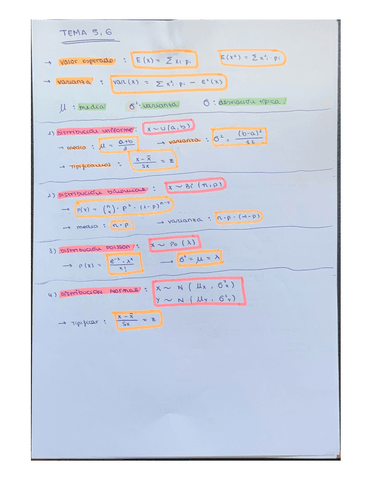 TEMA 5,6
→ valor esperado : E(x) = Σ xi · pi   E(x²) = Σ x²i · pi
→ varianza : var(x) = Σ x²i · pi − E²(x)
μ : media   σ² : varianza   σ : desviación típica
1) Distribución uniforme : x ~ U(a,b)
→ media : μ = (a+b)/2   → varianza : σ² = (b-a)²/12
→ tipificamos : (x - x̄)/Sx = z
2) Distribución binomial : x ~ Bi (n,p)
→ P(x) = (n x) · pˣ · (1-p)ⁿ⁻ˣ
→ media : n·p   → varianza : n·p·(1-p)
3) Distribución Poisson : x ~ Po (λ)
→ P(x) = e^-λ · λˣ / x!   → σ² = μ = λ
4) Distribución normal : x ~ N (μx, σ²x)
y ~ N (μy, σ²y)
→ tipificar : (x - x̄)/Sx = z